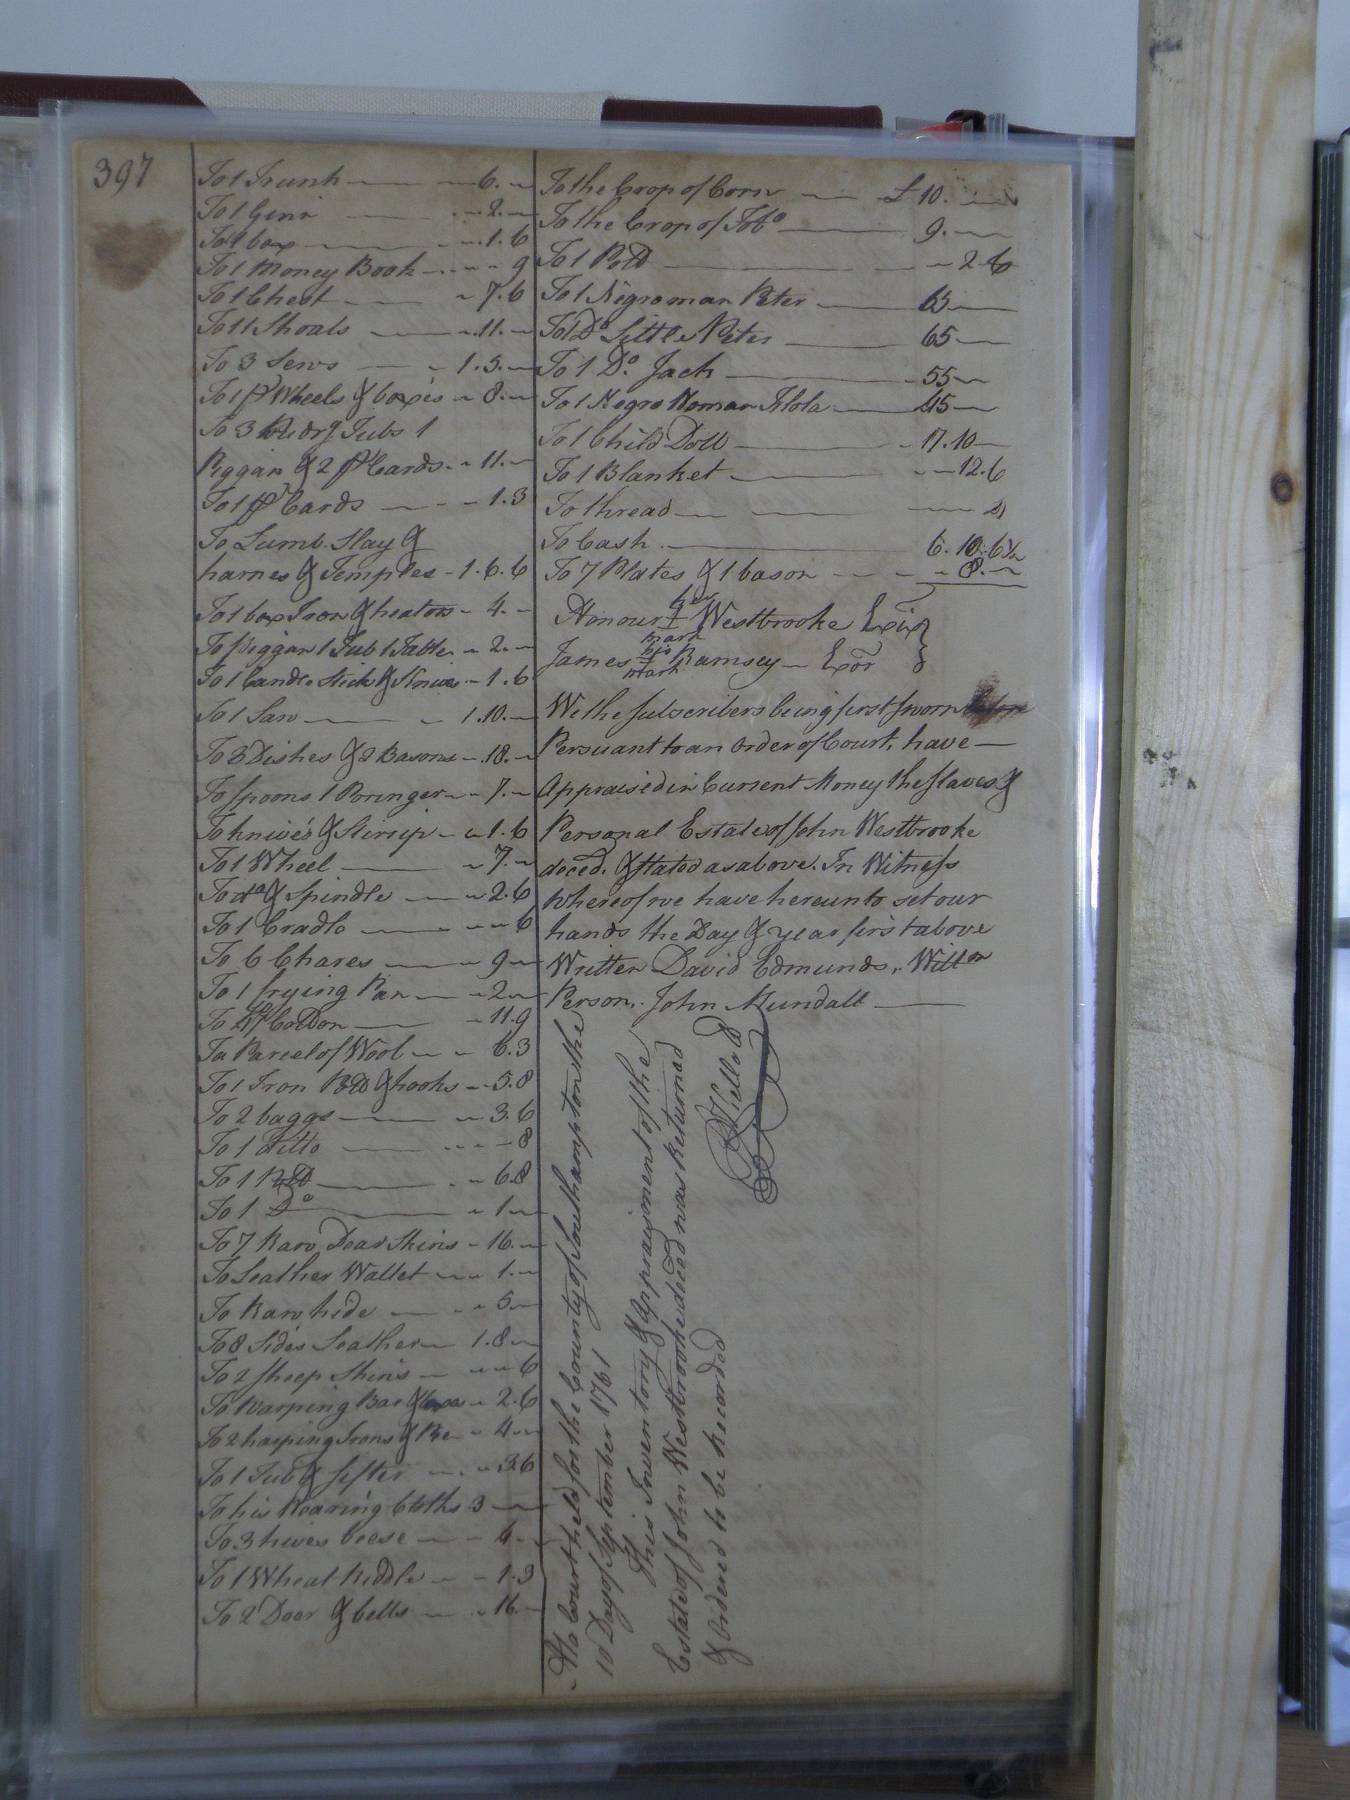 397
To 1 Trunk 6.
To 1 Ginn 2.
To 1 box 1.6
To 1 Money Book 9
To 1 Chest 7.6
To 11 Shoals 11.
To 3 Sews 1.5.
To 1 pr Wheels & boxies 8.
To 3 Tubs 1
Piggan & 2 pr Cards 11.
To 1 pr Cards 1.3
To Lumb. Slay &
harnes & Temples 1.6.6
To 1 box Iron & heators 4.
To Piggan 1 Tub 1 Table 2.
To 1 Candle stick & 1.6
To 1 Saw 1.10.
To 3 Dishes & 2 Basons 18.
To spoons 1 Poringer 7.
To knives & Stirrip 1.6
To 1 Wheel 7.
To do & Spindle 2.6
To 1 Cradle 6
To 6 Chares 9
To 1 frying Pan 2
To Cotton 11.9
To a Parcel of Wool 6.3
To 1 Iron Pott & hooks 5.8
To 2 baggs 3.6
To 1 Ditto 8
To 1 Pott 6.8
To 1 Do 1
To 7 Raw Dear Skins 16.
To Leather Wallet 1.
To Raw hide 5
To 8 Sides Leather 1.8
To 2 sheep Skins 6
To Warping Bar & 2.6
To 2 harping Irons & 4
To 1 Tub & sifter 3.6
To his Wearing Cloths 3
To 3 hives beese 6.
To 1 Wheat Riddle 1.3
To 2 Deer & bells 16.
To the Crop of Corn £10.
To the Crop of Tobo 9.
To 1 Pott 2.6
To 1 Negro man Peter 65
To 1 Do Little Peter 65
To 1 Do. Jack 55
To 1 Negro Woman 45
To 1 Child Doll 17.10
To 1 Blanket 12.6
To thread
To Cash 6.10.6½
To 7 Plates & 1 bason 8.
her
Honour + Westbrooke Exix
mark
his
James + Ramsey Exor
mark
We the subscribers being first sworn
Persuant to an Order of Court, have
Appraised in Current Money the slaves &
Personal Estate of John Westbrooke
deced. & stated as above. In Witness
whereof we have hereunto set our
hands the Day & year first above
Written David Edmunds, Willm
Person. John Mundall
At a Court held for the County of Southampton the
10 Day of September 1761
This Inventory & Appraisment of the
Estate of John Westbrooke deced was Returned
& Ordered to be Recorded